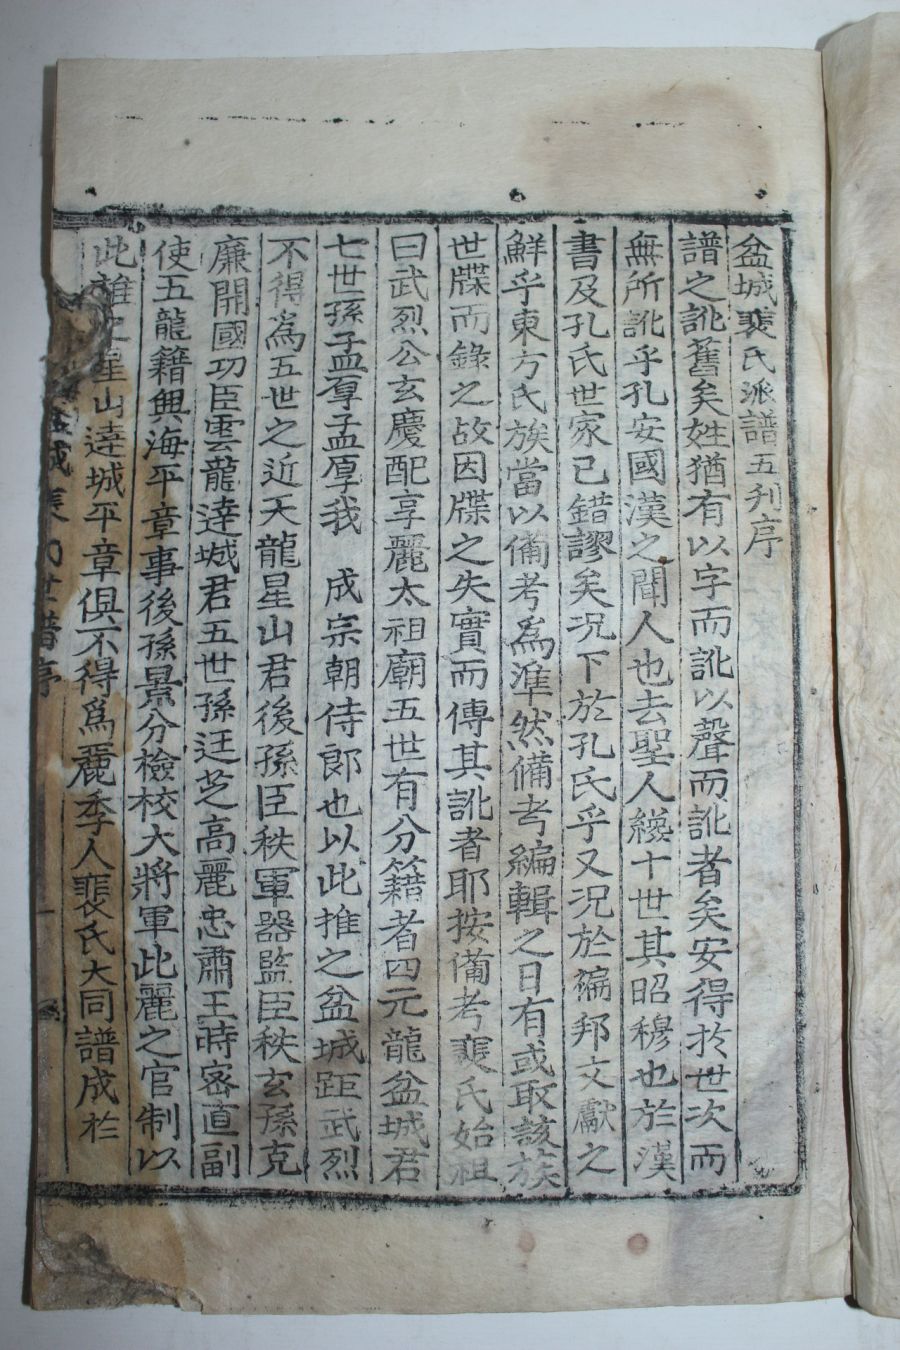 盆城裵氏派譜五刋序
譜之訛舊矣姓猶有以字而訛以聲而訛者矣安得於世次而
無所訛乎孔安國漢之聞人也去聖人纔十世其昭穆也於漢
書及孔氏世家已錯謬矣况下於孔氏乎又况於偏邦文獻之
鮮乎東方氏族當以備考爲準然備考編輯之日有或取該族
世牒而錄之故因牒之失實而傳其訛者耶按備考裵氏始祖
曰武烈公玄慶配享麗太祖廟五世有分籍者四元龍盆城君
七世孫孟厚孟厚我 成宗朝侍郎也以此推之盆城距武烈
不得爲五世之近天龍星山君後孫臣秩軍器監臣秩玄孫克
廉開國功臣雲龍達城君五世孫廷芝高麗忠肅王時密直副
使五龍籍興海平章事後孫景分檢校大將軍此麗之官制以
此推 星山達城平章俱不得爲麗季人裵氏大同譜成於